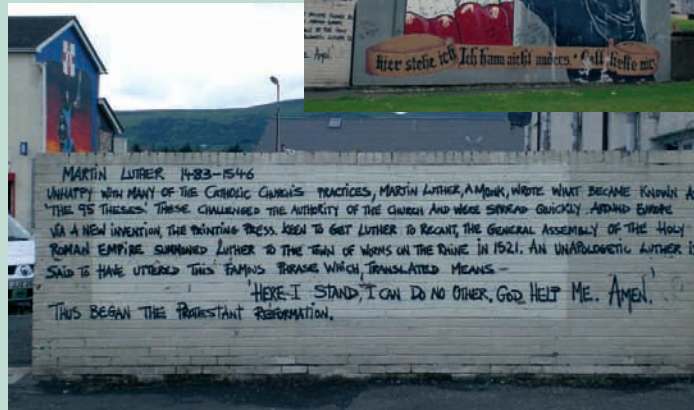 Hier stehe ich Ich kann nicht anders. Gott helfe mir
Amen!
MARTIN LUTHER 1483-1546
UNHAPPY WITH MANY OF THE CATHOLIC CHURCH'S PRACTICES, MARTIN LUTHER, A MONK, WROTE WHAT BECAME KNOWN AS
'THE 95 THESES.' THESE CHALLENGED THE AUTHORITY OF THE CHURCH AND WERE SPREAD QUICKLY AROUND EUROPE
VIA A NEW INVENTION, THE PRINTING PRESS. KEEN TO GET LUTHER TO RECANT, THE GENERAL ASSEMBLY OF THE HOLY
ROMAN EMPIRE SUMMONED LUTHER TO THE TOWN OF WORMS ON THE RHINE IN 1521. AN UNAPOLOGETIC LUTHER IS
SAID TO HAVE UTTERED THIS FAMOUS PHRASE WHICH, TRANSLATED MEANS -
'HERE I STAND, I CAN DO NO OTHER, GOD HELP ME. AMEN.'
THUS BEGAN THE PROTESTANT REFORMATION.